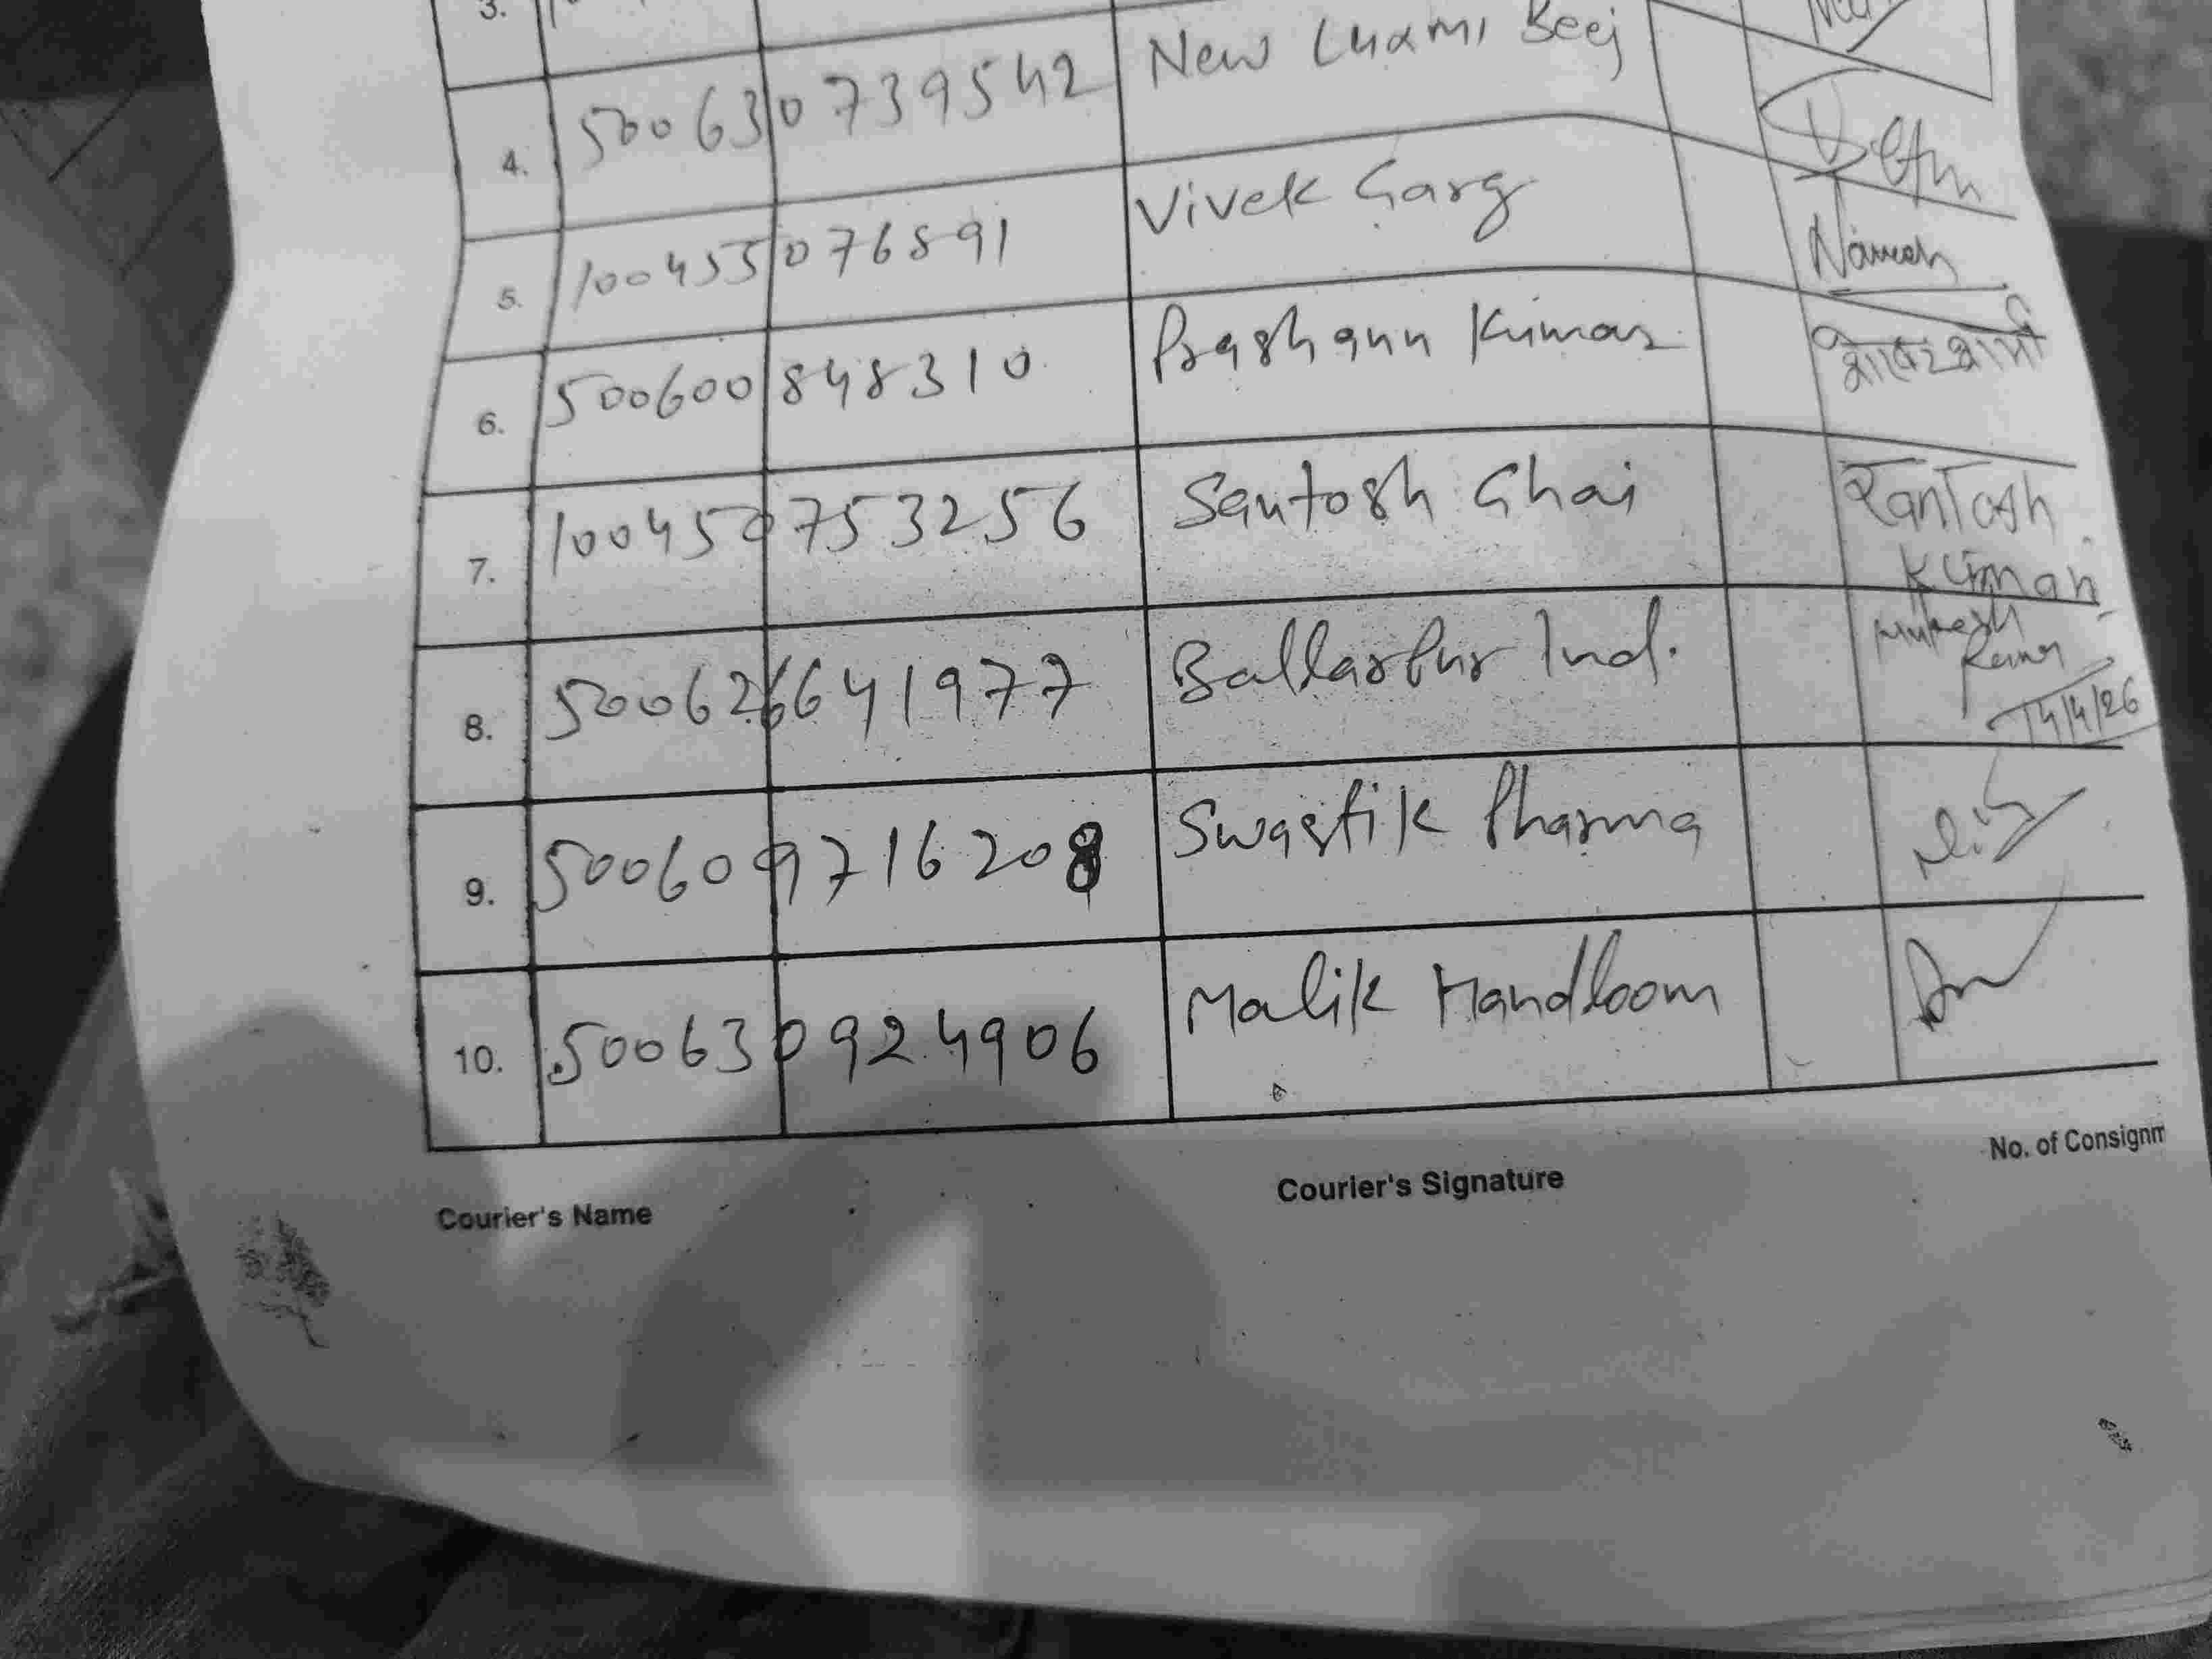 3.
4. 500630739542 New Luxmi Beej
5. 100455076891 Vivek Garg Naresh
6. 500600848310 Prashann Kumar
7. 100450753256 Santosh Ghai Santosh
Kuman
8. 500626641977 Ballarpur Ind. Mukesh
Kumar
14/4/26
9. 500609716208 Swastik Pharma
10. 500630924906 Malik Handloom
No. of Consignm
Courier's Name Courier's Signature